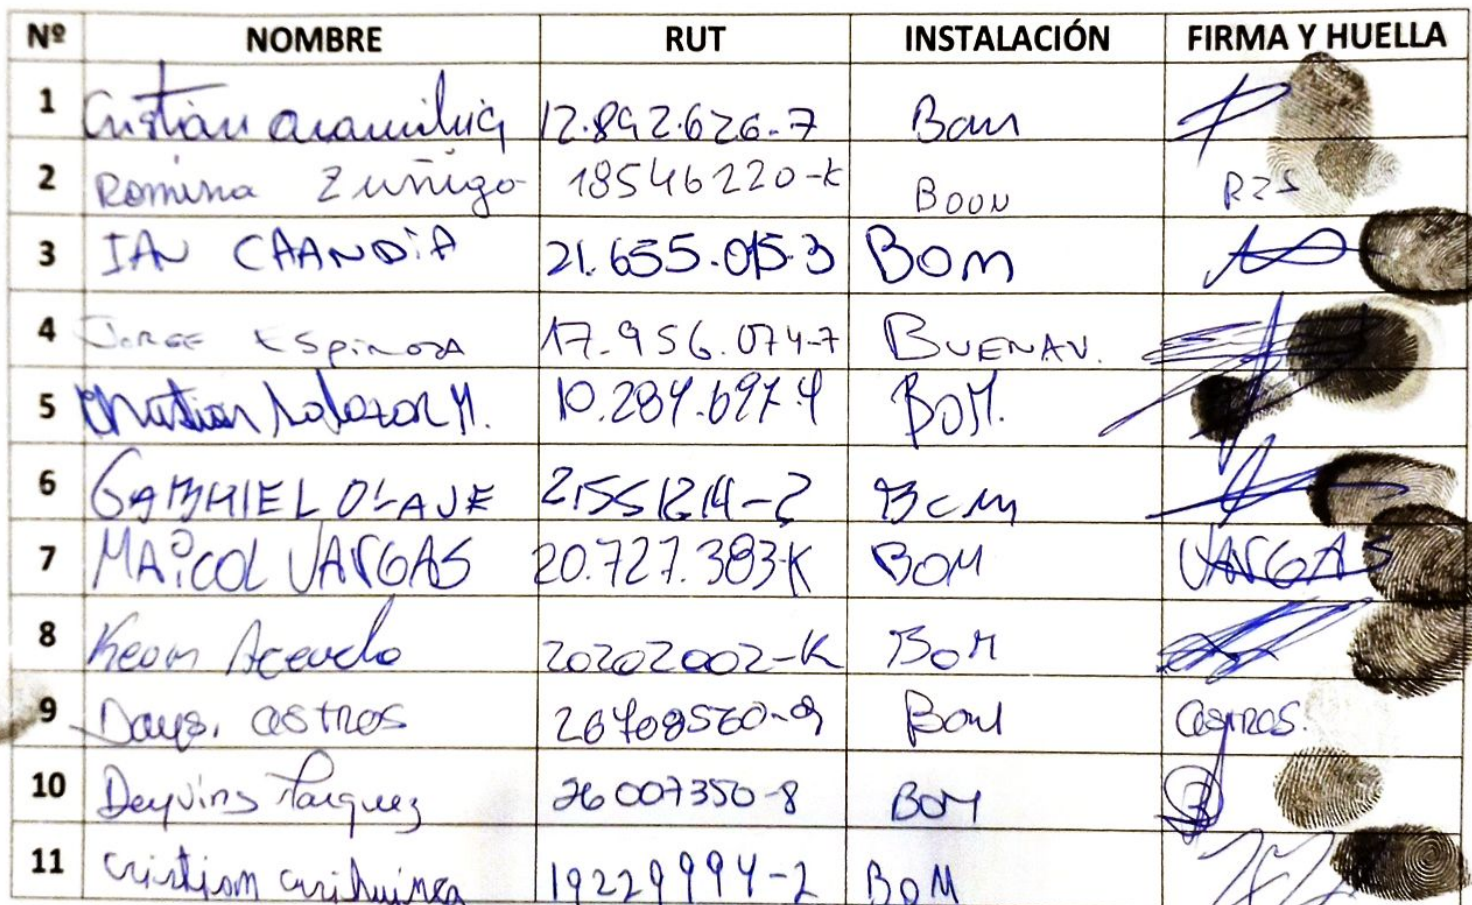 Nº NOMBRE RUT INSTALACIÓN FIRMA Y HUELLA
1 Cristian 12.892.626-7 Bom
2 Romina Zuñigo 18546220-K BOOM RZS
3 IAN CAANDiA 21.655.015-3 BOM
4 Jorge Espinoza 17.956.074-7 BUENAV.
5 Christian Salazar M. 10.284.697-4 BOM.
6 GABRIEL OLAVE BOM
7 MAiCOL VARGAS 20.727.383-K BOM VARGAS
8 Kevin Acevedo 20202002-K BOM
9 Days. castros Bom castros.
10 Deyvins Marquez 26007350-8 BOM
11 Cristian curihuinca 19229994-2 BOM